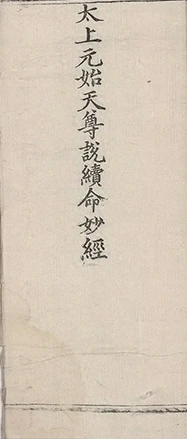 太上元始天尊說續命妙經